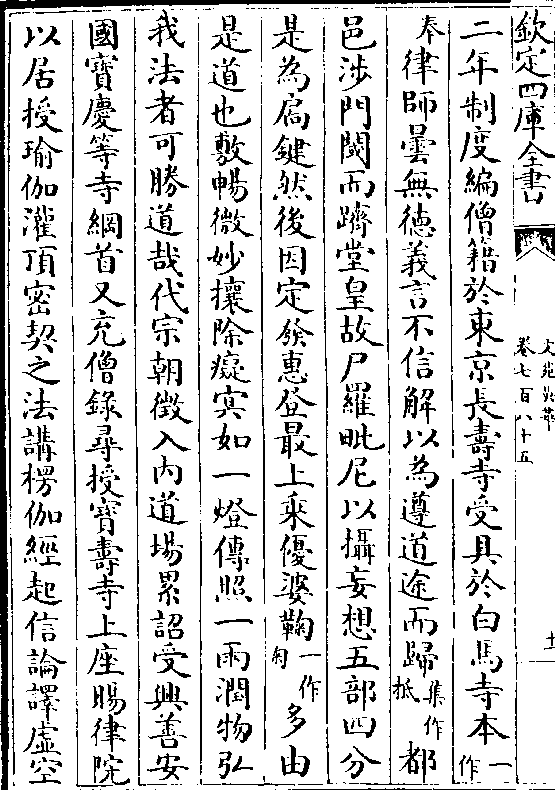 欽定四庫全書
文苑英華
卷七百八十五
十
二年制度編僧籍於東京長壽寺受具於白馬寺本一作
奉律師曇無德義言不信解以為遵道途而歸集作抵都
邑涉門閾而躋堂皇故尸羅毗尼以攝妄想五部四分
是為扃鍵然後因定發惠登最上乘優婆鞠一作匊多由
是道也敷暢微妙攘除癡冥如一燈傳照一雨潤物弘
我法者可勝道哉代宗朝徵入內道場累詔受興善安
國寶慶等寺綱首又充僧錄尋授寶壽寺上座賜律院
以居授瑜伽灌頂密契之法講楞伽經起信論譯虛空